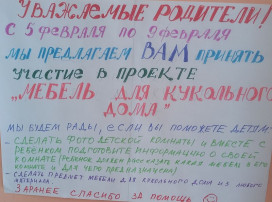 УВАЖАЕМЫЕ РОДИТЕЛИ!
С 5 февраля по 9 февраля
мы предлагаем ВАМ принять
участие в проекте
„МЕБЕЛЬ ДЛЯ КУКОЛЬНОГО
ДОМА"
МЫ БУДЕМ РАДЫ, ЕСЛИ ВЫ ПОМОЖЕТЕ ДЕТЯМ:
- СДЕЛАТЬ ФОТО ДЕТСКОЙ КОМНАТЫ И ВМЕСТЕ С
РЕБЕНКОМ ПОДГОТОВИТЬ ИНФОРМАЦИЮ О СВОЕЙ
КОМНАТЕ (РЕБЕНОК ДОЛЖЕН РАССКАЗАТЬ КАКАЯ МЕБЕЛЬ В ЕГО
КОМНАТЕ И ДЛЯ ЧЕГО ПРЕДНАЗНАЧЕНА)
- СДЕЛАТЬ ПРЕДМЕТ МЕБЕЛИ ДЛЯ КУКОЛЬНОГО ДОМА ИЗ ЛЮБОГО
МАТЕРИАЛА
ЗАРАНЕЕ СПАСИБО ЗА ПОМОЩЬ